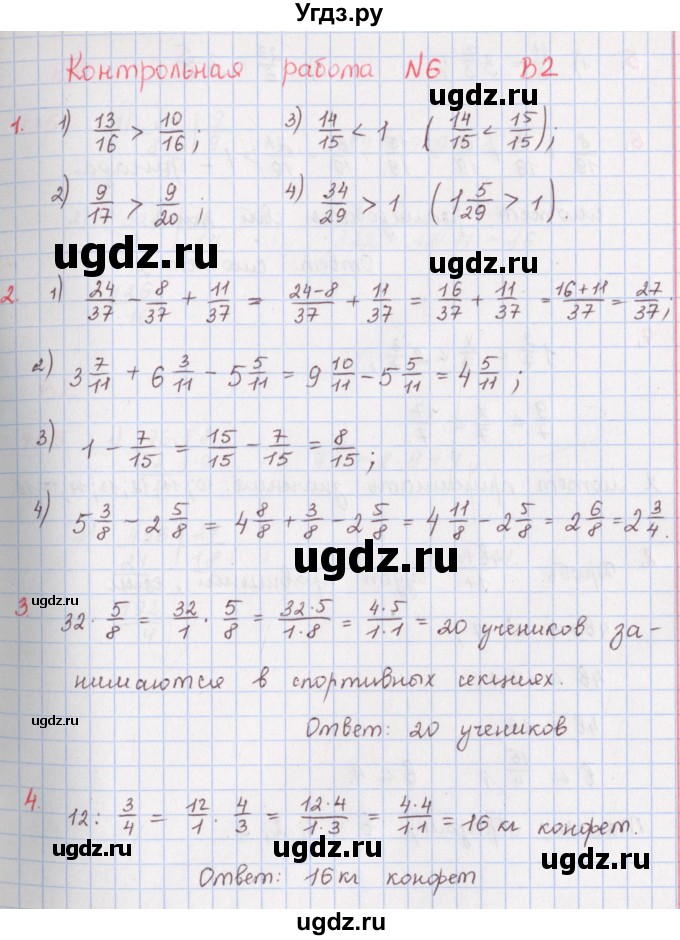 Угдз.ру
Контрольная работа №6 В2
ugdz.ru
1. 1) 13/16 > 10/16; 3) 14/15 < 1 (14/15 < 15/15);
2) 9/17 > 9/20; 4) 34/29 > 1 (1 5/29 > 1)
ugdz.ru ugdz.ru
2. 1) 24/37 − 8/37 + 11/37 = (24−8)/37 + 11/37 = 16/37 + 11/37 = (16+11)/37 = 27/37;
2) 3 7/11 + 6 3/11 − 5 5/11 = 9 10/11 − 5 5/11 = 4 5/11;
3) 1 − 7/15 = 15/15 − 7/15 = 8/15;
4) 5 3/8 − 2 5/8 = 4 8/8 + 3/8 − 2 5/8 = 4 11/8 − 2 5/8 = 2 6/8 = 2 3/4.
ugdz.ru
ugdz.ru
3. 32 · 5/8 = 32/1 · 5/8 = (32·5)/(1·8) = (4·5)/(1·1) = 20 учеников за-
нимаются в спортивных секциях.
ugdz.ru ugdz.ru
Ответ: 20 учеников
4. 12 : 3/4 = 12/1 · 4/3 = (12·4)/(1·3) = (4·4)/(1·1) = 16 кг конфет.
ugdz.ru ugdz.ru
Ответ: 16 кг конфет
ugdz.ru